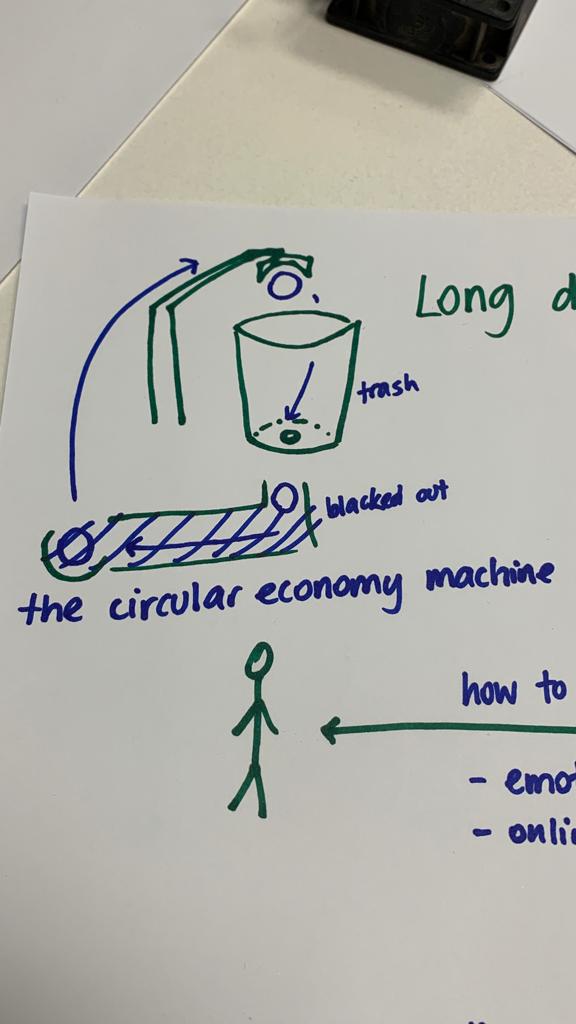 Long
trash
blacked out
the circular economy machine
how to
- emo
- onli